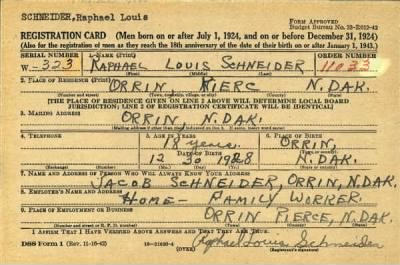 SCHNEIDER, Raphael Louis
FORM APPROVED
Budget Bureau No. 33-R012-42
REGISTRATION CARD (Men born on or after July 1, 1924, and on or before December 31, 1924)
(Also for the registration of men as they reach the 18th anniversary of the date of their birth on or after January 1, 1943.)
SERIAL NUMBER 1. NAME (Print) ORDER NUMBER
W- 323 RAPHAEL LOUIS SCHNEIDER 11033
(First) (Middle) (Last)
2. PLACE OF RESIDENCE (Print)
ORRIN PIERC N.DAK.
(Number and street) (Town, township, village, or city) (County) (State)
[THE PLACE OF RESIDENCE GIVEN ON LINE 2 ABOVE WILL DETERMINE LOCAL BOARD
JURISDICTION; LINE 2 OF REGISTRATION CERTIFICATE WILL BE IDENTICAL]
3. MAILING ADDRESS
ORRIN, N.DAK.
[Mailing address if other than place indicated on line 2. If same, insert word same]
4. TELEPHONE 5. AGE IN YEARS 6. PLACE OF BIRTH
18 years. ORRIN,
DATE OF BIRTH
12 30 1928 N.DAK.
(Exchange) (Number) (Mo.) (Day) (Yr.) (State or country)
7. NAME AND ADDRESS OF PERSON WHO WILL ALWAYS KNOW YOUR ADDRESS
JACOB SCHNEIDER, ORRIN, N.DAK.
8. EMPLOYER'S NAME AND ADDRESS
HOME- FAMILY WORKER.
9. PLACE OF EMPLOYMENT OR BUSINESS
ORRIN PIERCE, N.DAK.
(Number and street or R. F. D. number) (Town) (County) (State)
I AFFIRM THAT I HAVE VERIFIED ABOVE ANSWERS AND THAT THEY ARE TRUE.
DSS Form 1 (Rev. 11-16-42) (OVER) Raphael Louis Schneider
(Registrant's signature)